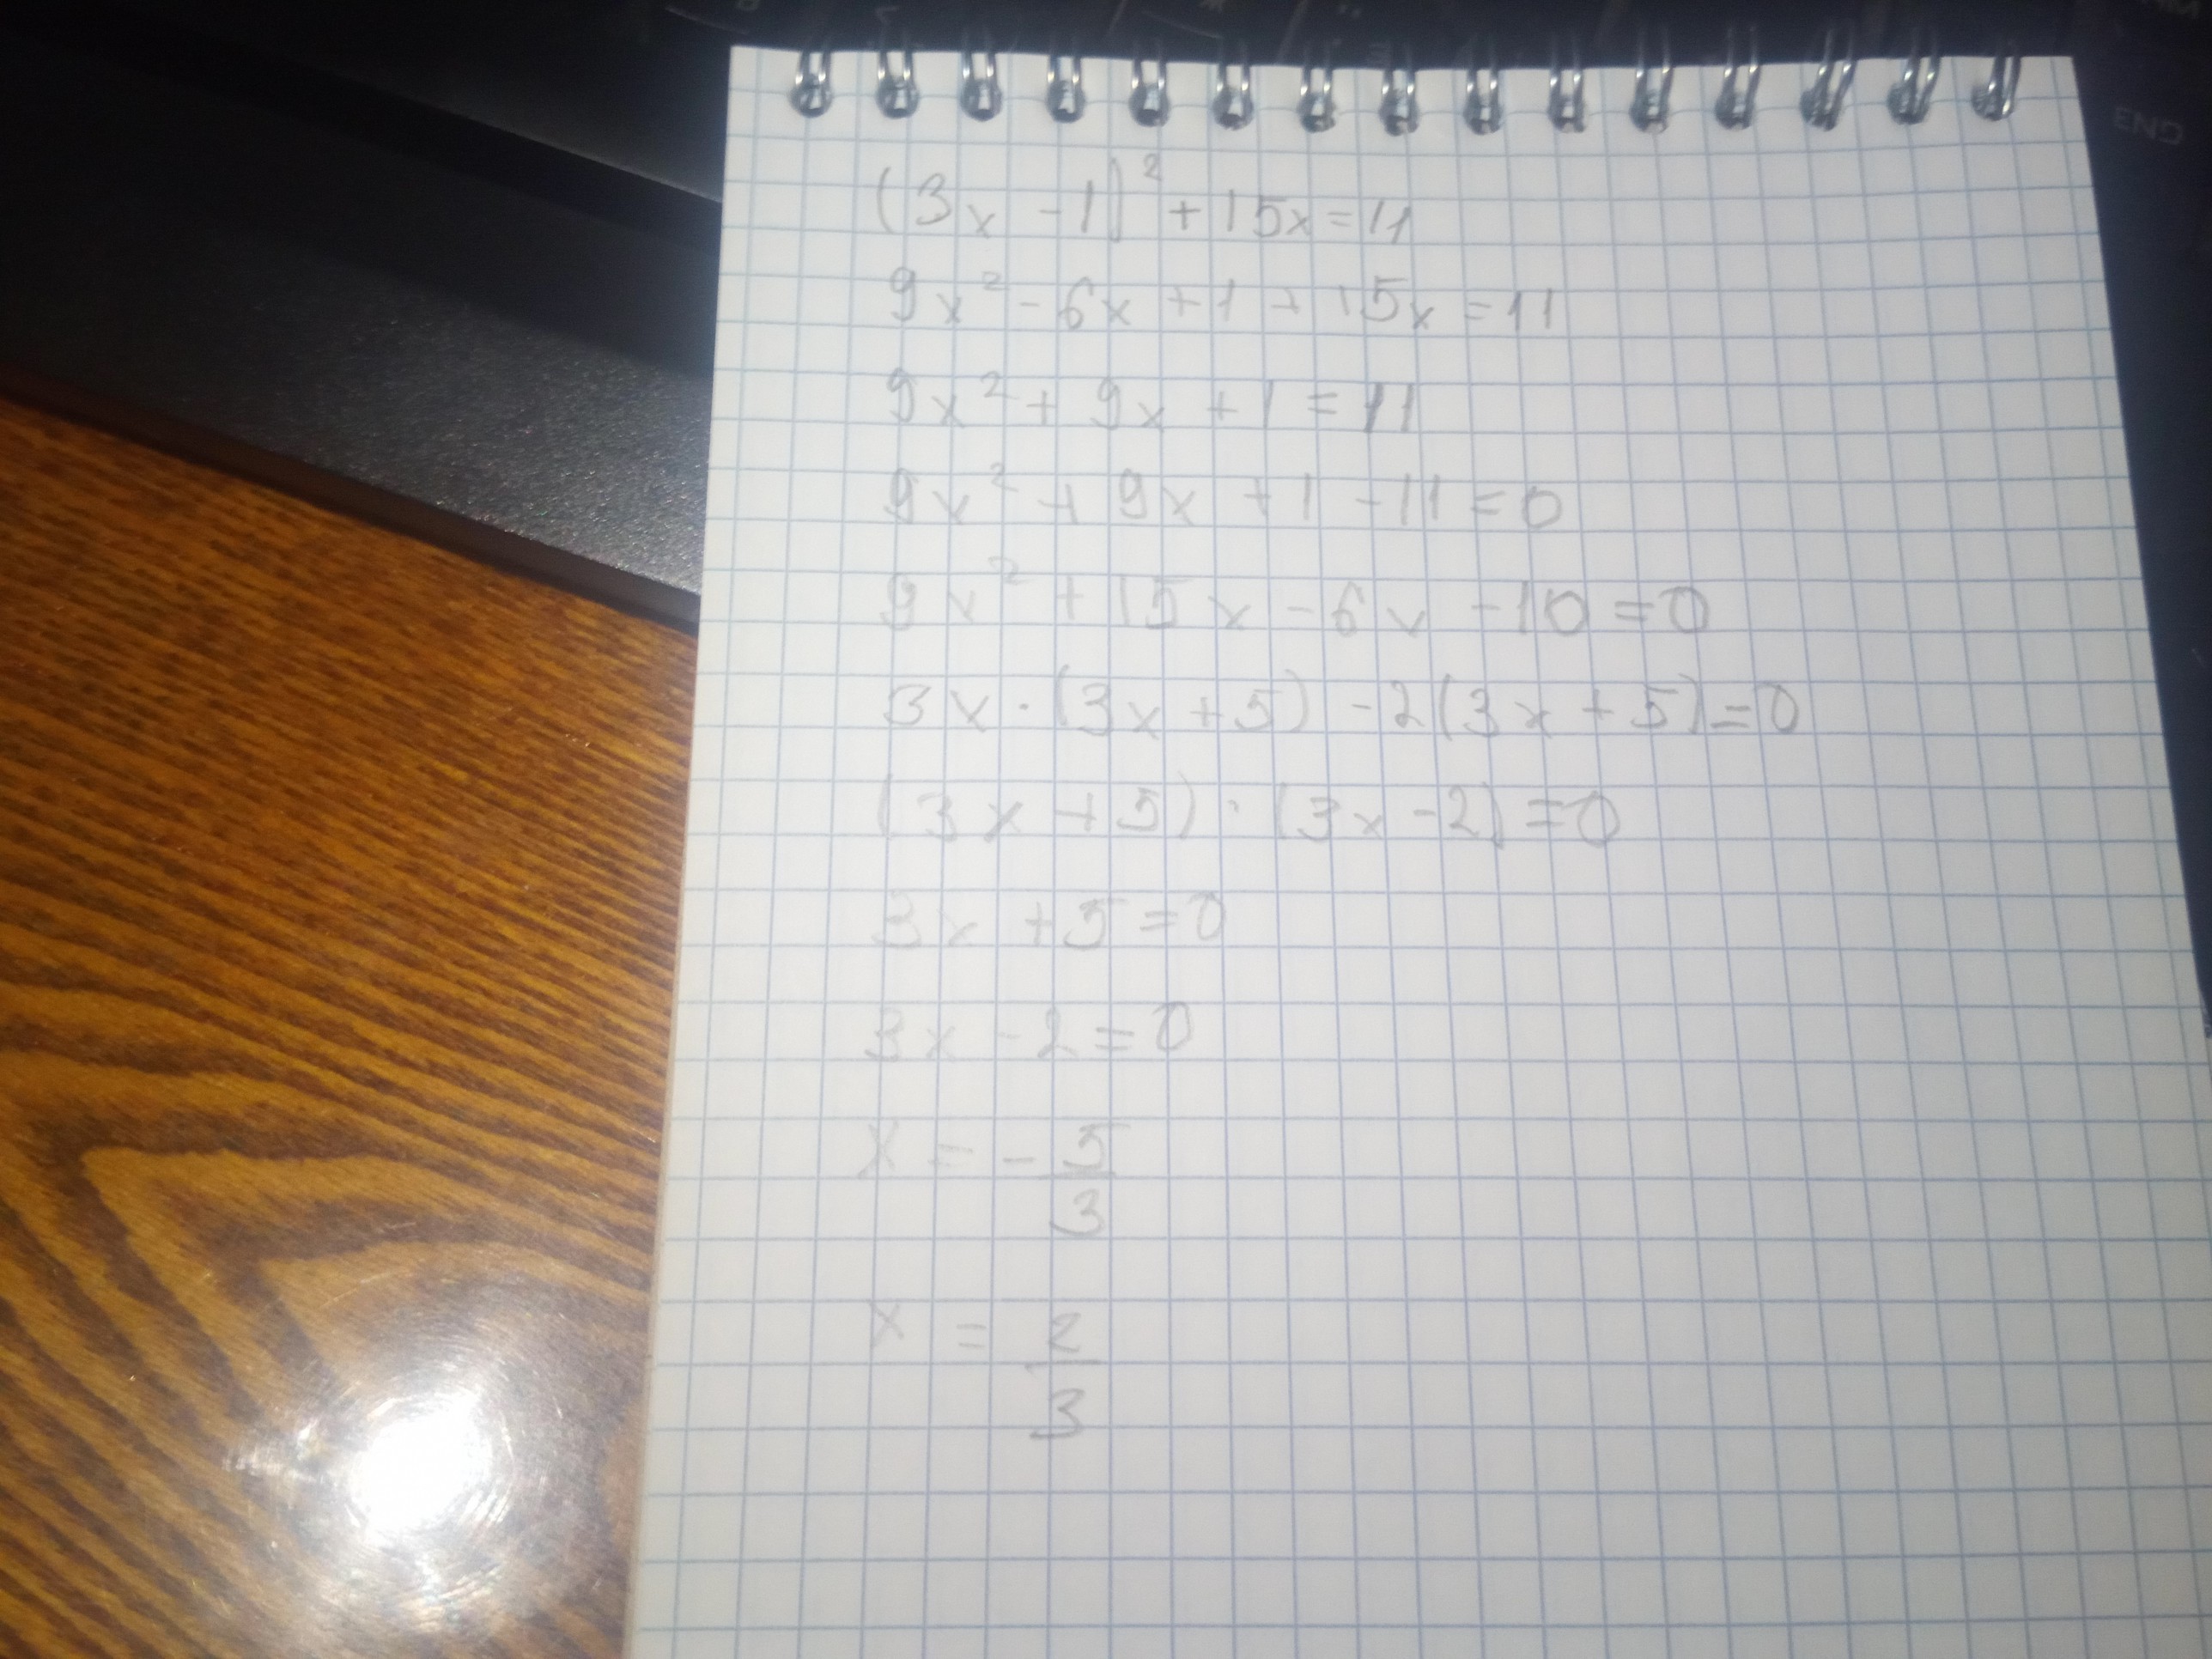 END
(3x - 1)² + 15x = 11
9x² - 6x + 1 + 15x = 11
9x² + 9x + 1 = 11
9x² + 9x + 1 - 11 = 0
9x² + 15x - 6x - 10 = 0
3x · (3x + 5) - 2(3x + 5) = 0
(3x + 5) · (3x - 2) = 0
3x + 5 = 0
3x - 2 = 0
x = - 5/3
x = 2/3